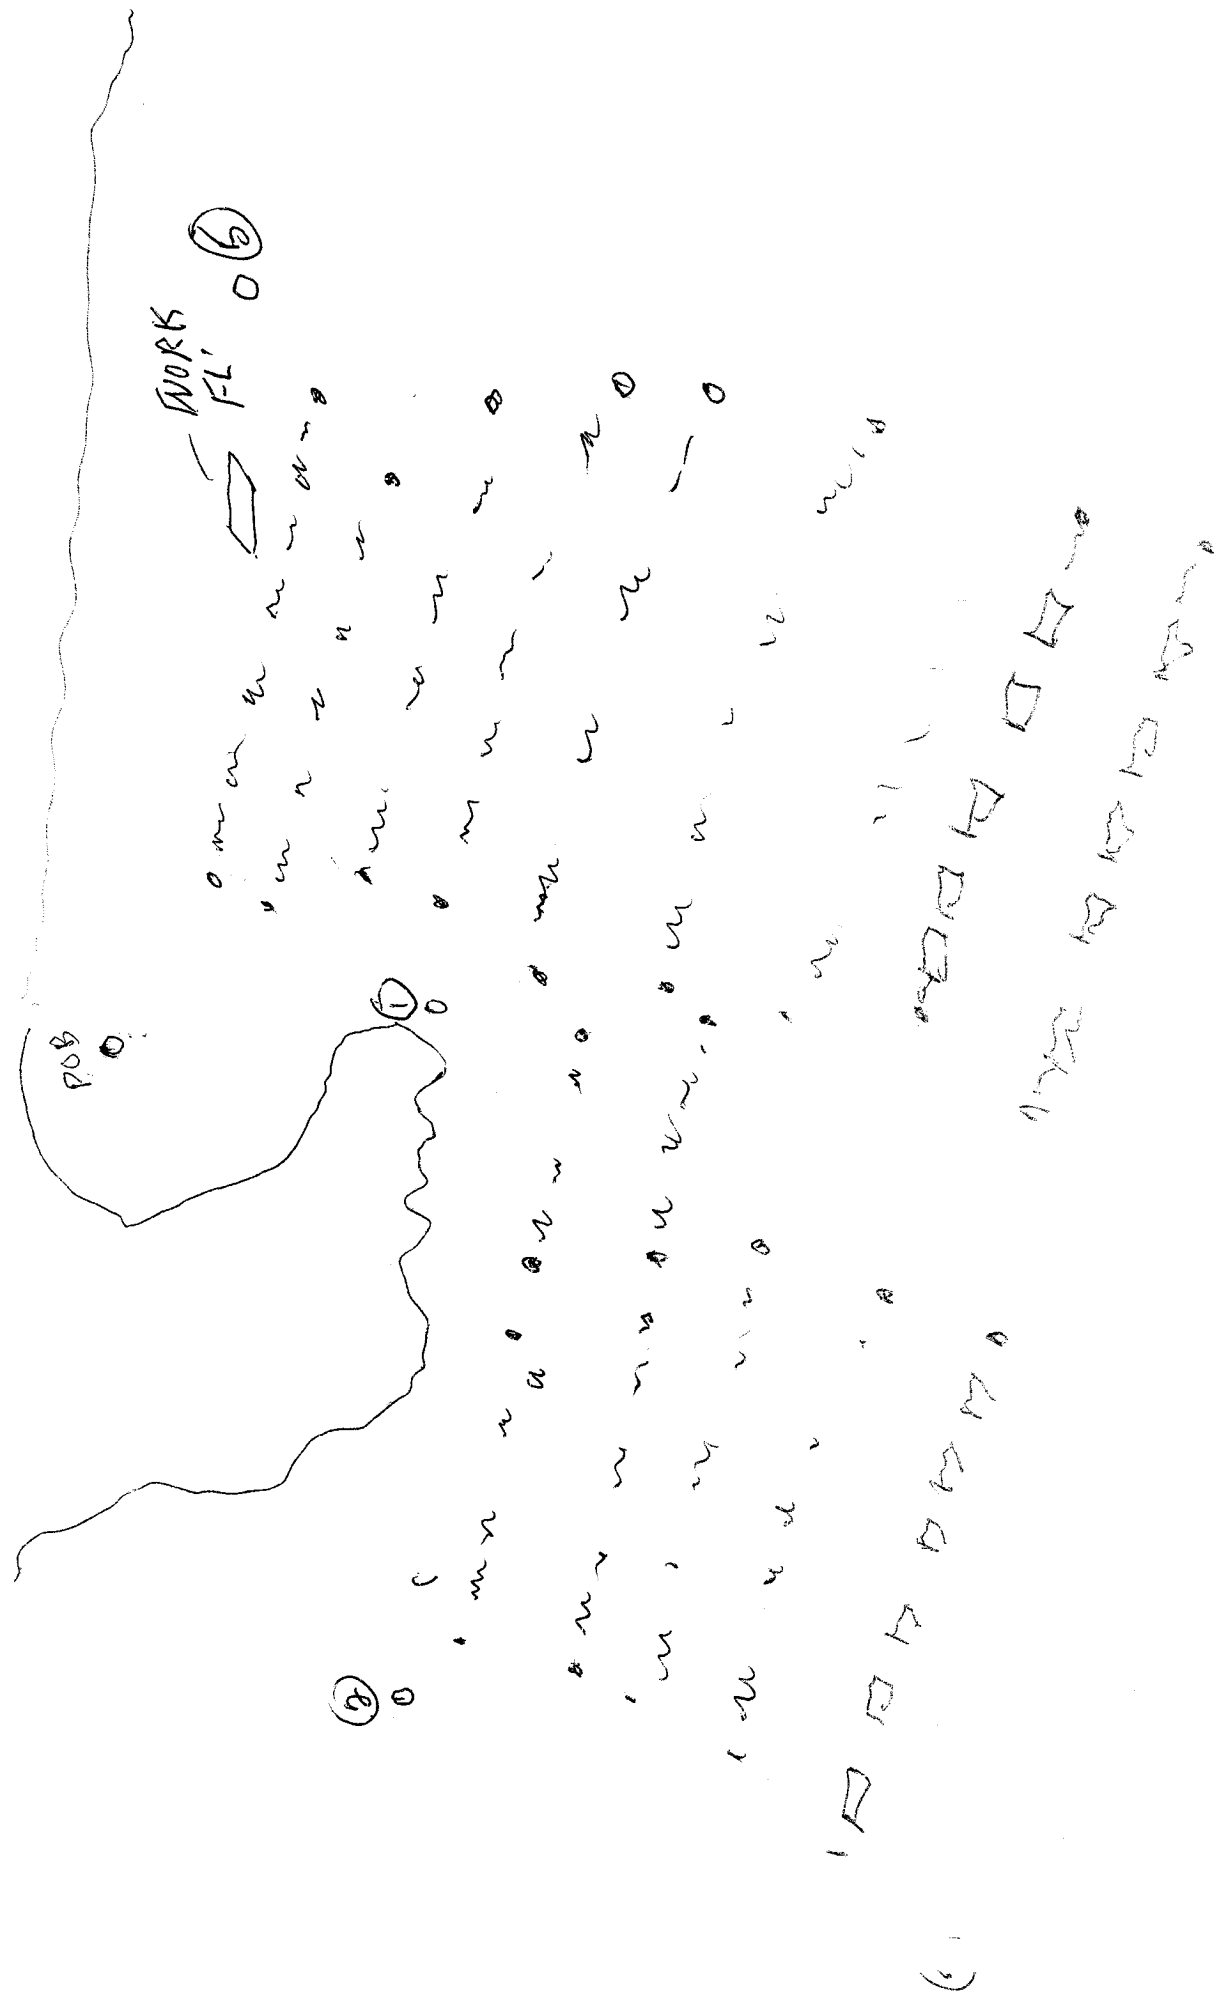 WORK
FL'
6
POB
1
2